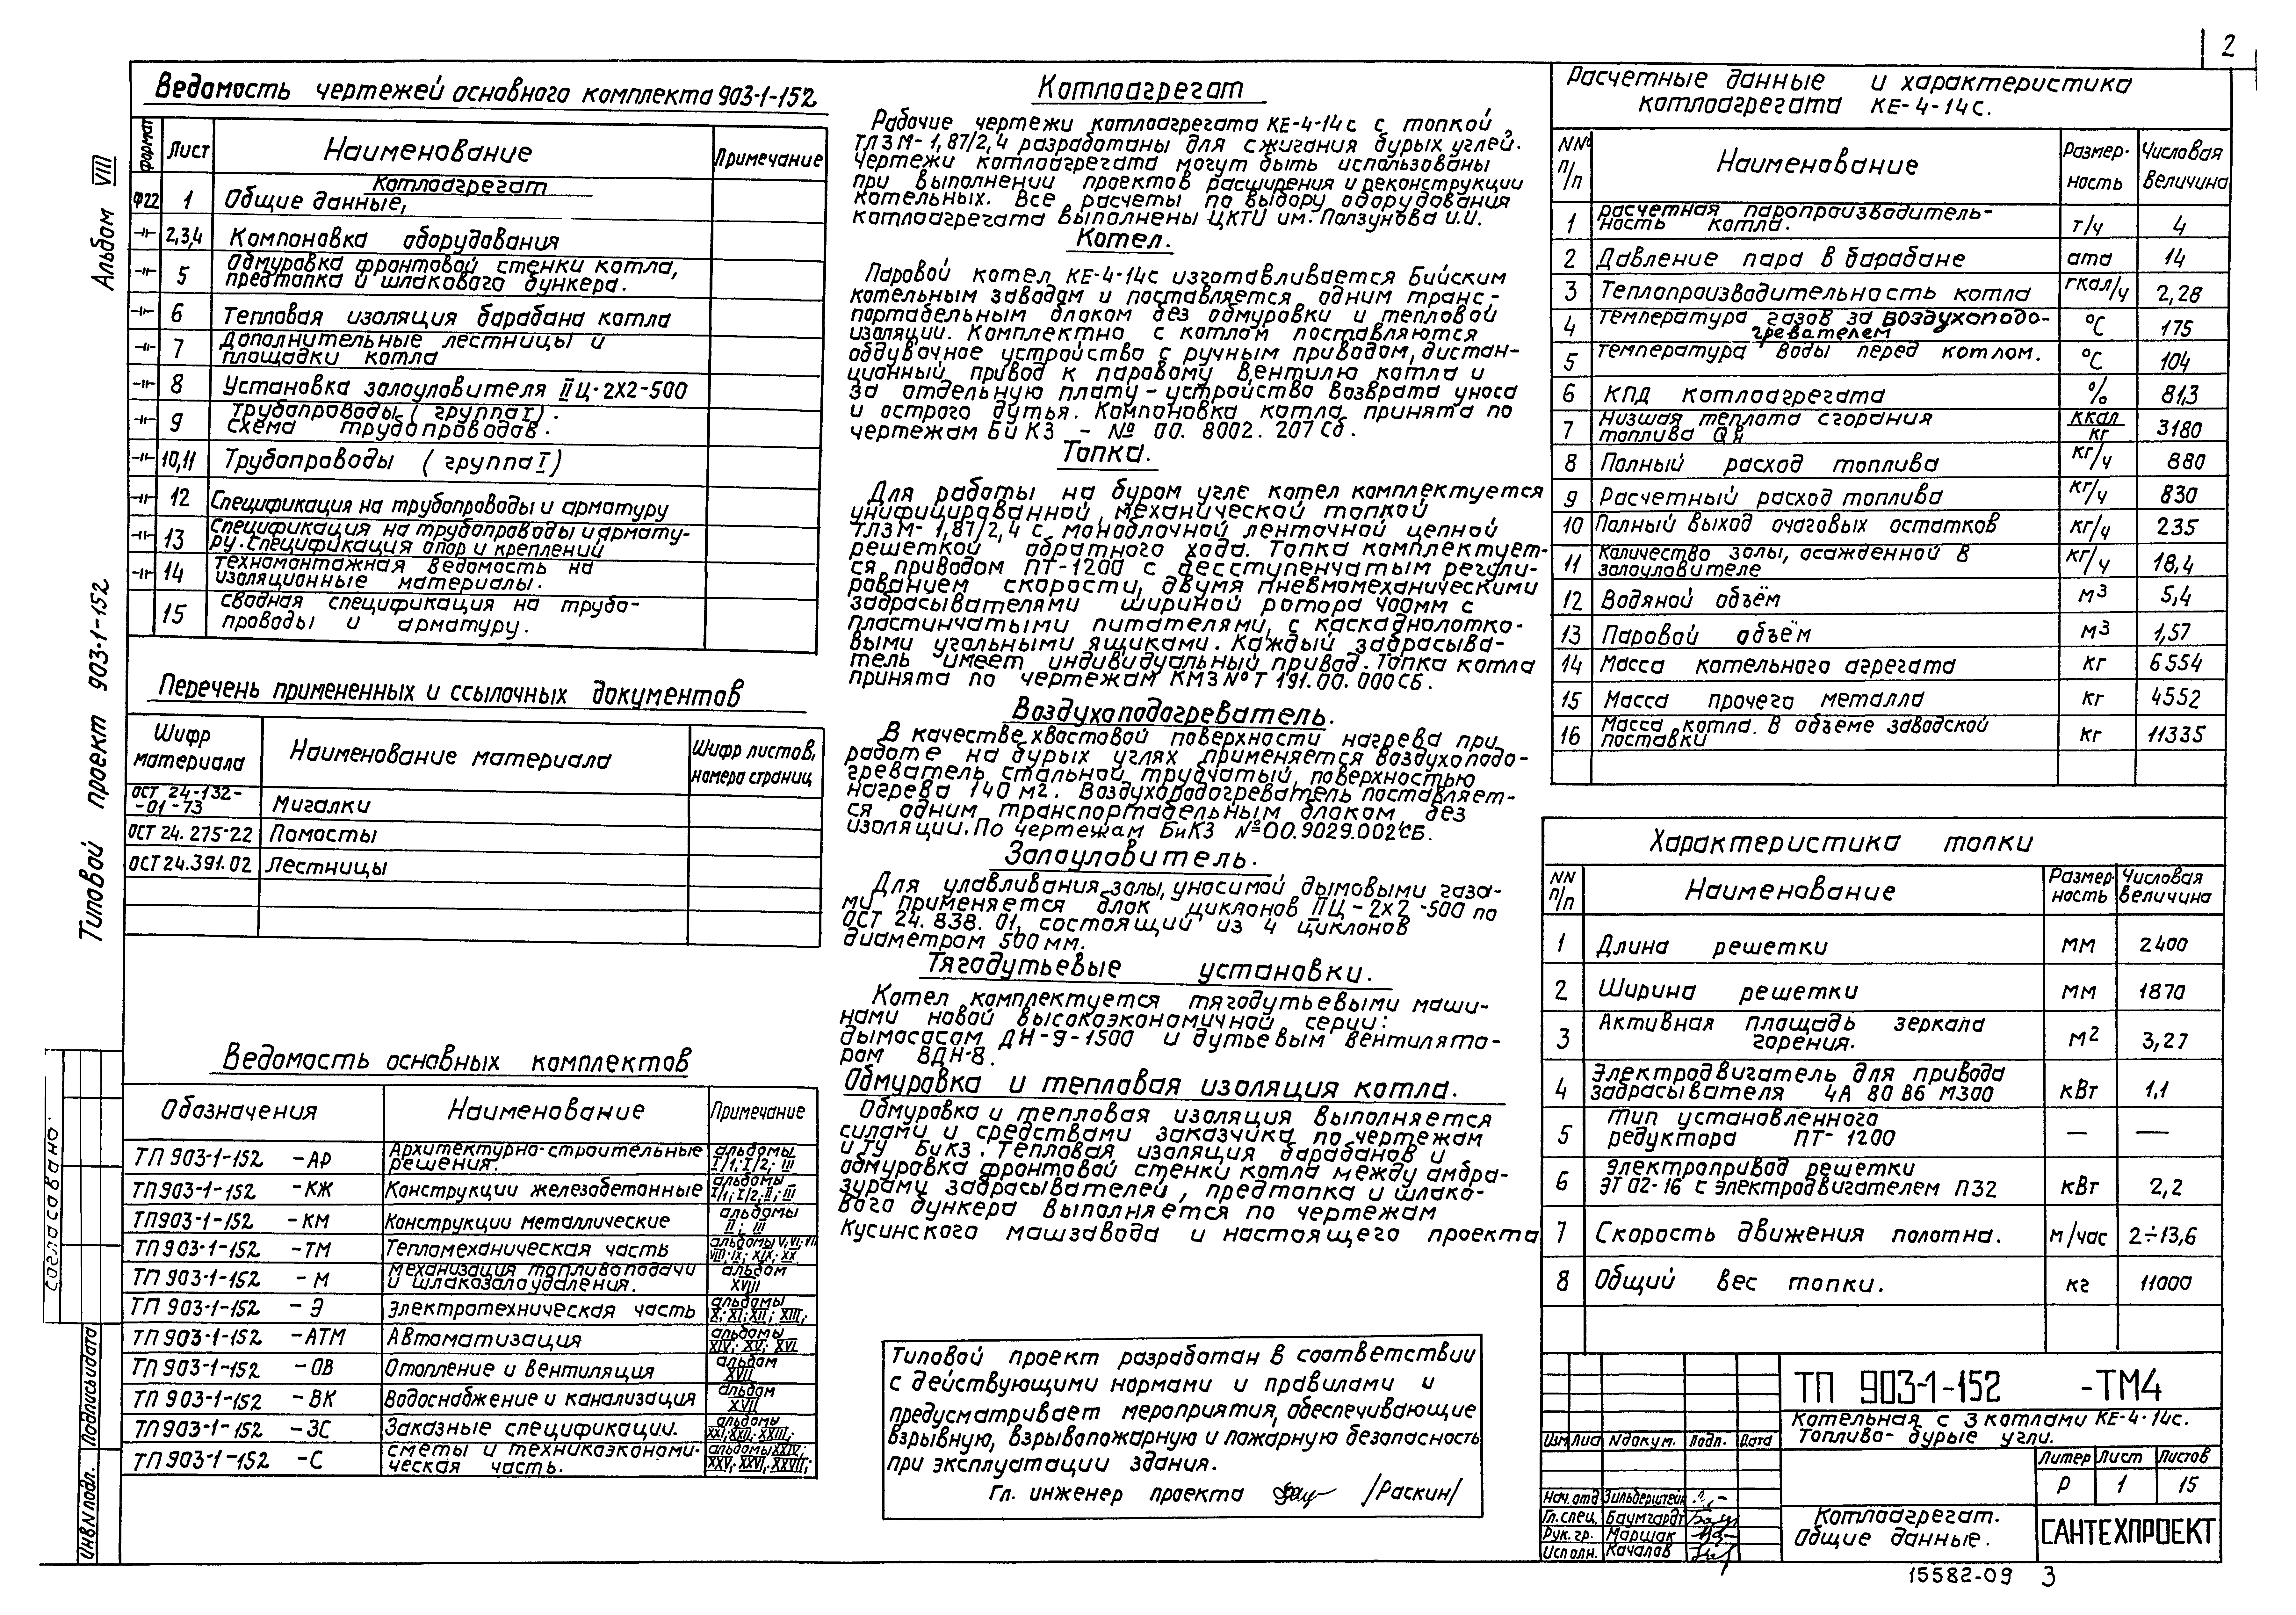 2
Альбом VIII
Типовой проект 903-1-152
Ведомость чертежей основного комплекта 903-1-152
Формат Лист Наименование Примечание
Котлоагрегат
Ф22 1 Общие данные,
-"- 2,3,4 Компоновка оборудования
-"- 5 Обмуровка фронтовой стенки котла,
предтопка и шлакового бункера.
-"- 6 Тепловая изоляция барабана котла
-"- 7 Дополнительные лестницы и
площадки котла
-"- 8 Установка золоуловителя IIЦ-2х2-500
-"- 9 Трубопроводы (группа I).
Схема трубопроводов.
-"- 10,11 Трубопроводы (группа I)
-"- 12 Спецификация на трубопроводы и арматуру
-"- 13 Спецификация на трубопроводы и армату-
ру. Спецификация опор и креплений
-"- 14 Техномонтажная ведомость на
изоляционные материалы.
15 Сводная спецификация на трубо-
проводы и арматуру.
Перечень примененных и ссылочных документов
Шифр материала Наименование материала Шифр листов, номера страниц
ОСТ 24-132-
-01-73 Мигалки
ОСТ 24.275-22 Помосты
ОСТ 24.391.02 Лестницы
Ведомость основных комплектов
Обозначения Наименование Примечание
ТП 903-1-152 -АР Архитектурно-строительные решения. альбомы I/1; I/2; III
ТП 903-1-152 -КЖ Конструкции железобетонные альбомы I/1; I/2; II; III
ТП 903-1-152 -КМ Конструкции металлические альбомы II; III
ТП 903-1-152 -ТМ Тепломеханическая часть альбомы V; VI; VII VIII; IX; XIX; XX
ТП 903-1-152 -М Механизация топливоподачи и шлакозолоудаления. альбом XVIII
ТП 903-1-152 -Э Электротехническая часть альбомы X; XI; XII; XIII;
ТП 903-1-152 -АТМ Автоматизация альбомы XIV; XV; XVI
ТП 903-1-152 -ОВ Отопление и вентиляция альбом XVII
ТП 903-1-152 -ВК Водоснабжение и канализация альбом XVII
ТП 903-1-152 -ЗС Заказные спецификации. альбомы XXI; XXII; XXIII;
ТП 903-1-152 -С Сметы и техникоэкономи-
ческая часть. альбомы XXIV; XXV; XXVI; XXVII;
Согласовано.
Подпись и дата
Инв N подл.
Котлоагрегат
Рабочие чертежи котлоагрегата КЕ-4-14с с топкой
ТЛЗМ-1,87/2,4 разработаны для сжигания бурых углей.
Чертежи котлоагрегата могут быть использованы
при выполнении проектов расширения и реконструкции
котельных. Все расчеты по выбору оборудования
котлоагрегата выполнены ЦКТИ им. Ползунова И.И.
Котел.
Паровой котел КЕ-4-14с изготавливается Бийским
котельным заводом и поставляется одним транс-
портабельным блоком без обмуровки и тепловой
изоляции. Комплектно с котлом поставляются
обдувочное устройство с ручным приводом, дистан-
ционный привод к паровому вентилю котла и
за отдельную плату - устройство возврата уноса
и острого дутья. Компоновка котла принята по
чертежам БиКЗ - № 00.8002.207Сб.
Топка.
Для работы на буром угле котел комплектуется
унифицированной механической топкой
ТЛЗМ-1,87/2,4 с моноблочной ленточной цепной
решеткой обратного хода. Топка комплектует-
ся приводом ПТ-1200 с бесступенчатым регули-
рованием скорости, двумя пневмомеханическими
забрасывателями шириной ротора 400мм с
пластинчатыми питателями, с каскаднолотко-
выми угольными ящиками. Каждый забрасыва-
тель имеет индивидуальный привод. Топка котла
принята по чертежам КМЗ № Т 191.00.000СБ.
Воздухоподогреватель.
В качестве хвостовой поверхности нагрева при
работе на бурых углях применяется воздухоподо-
греватель стальной трубчатый, поверхностью
нагрева 140 м2. Воздухоподогреватель поставляет-
ся одним транспортабельным блоком без
изоляции. По чертежам БиКЗ №00.9029.002СБ.
Золоуловитель.
Для улавливания золы, уносимой дымовыми газа-
ми применяется блок циклонов IIЦ-2х2-500 по
ОСТ 24.838.01, состоящий из 4 циклонов
диаметром 500 мм.
Тягодутьевые установки.
Котел комплектуется тягодутьевыми маши-
нами новой высокоэкономичной серии:
дымососом ДН-9-1500 и дутьевым вентилято-
ром ВДН-8.
Обмуровка и тепловая изоляция котла.
Обмуровка и тепловая изоляция выполняется
силами и средствами заказчика по чертежам
и ТУ БиКЗ. Тепловая изоляция барабанов и
обмуровка фронтовой стенки котла между амбра-
зурами забрасывателей, предтопка и шлако-
вого бункера выполняется по чертежам
Кусинского машзавода и настоящего проекта
Типовой проект разработан в соответствии
с действующими нормами и правилами и
предусматривает мероприятия, обеспечивающие
взрывную, взрывопожарную и пожарную безопасность
при эксплуатации здания.
Гл. инженер проекта /Раскин/
Расчетные данные и характеристика
котлоагрегата КЕ-4-14с.
NN п/п Наименование Размер-
ность Числовая величина
1 Расчетная паропроизводитель-
ность котла. т/ч 4
2 Давление пара в барабане ата 14
3 Теплопроизводительность котла гкал/ч 2,28
4 Температура газов за воздухоподо-
гревателем °С 175
5 Температура воды перед котлом. °С 104
6 КПД котлоагрегата % 81,3
7 Низшая теплота сгорания
топлива Qн ккал/кг 3180
8 Полный расход топлива кг/ч 880
9 Расчетный расход топлива кг/ч 830
10 Полный выход очаговых остатков кг/ч 235
11 Количество золы, осажденной в
золоуловителе кг/ч 18,4
12 Водяной объём м3 5,4
13 Паровой объём м3 1,57
14 Масса котельного агрегата кг 6554
15 Масса прочего металла кг 4552
16 Масса котла в объеме заводской
поставки кг 11335
Характеристика топки
NN п/п Наименование Размер-
ность Числовая величина
1 Длина решетки мм 2400
2 Ширина решетки мм 1870
3 Активная площадь зеркала
горения. м2 3,27
4 Электродвигатель для привода
забрасывателя 4А 80 В6 М300 кВт 1,1
5 Тип установленного
редуктора ПТ-1200 — —
6 Электропривод решетки
ЭТ 02-16 с электродвигателем П32 кВт 2,2
7 Скорость движения полотна. м/час 2÷13,6
8 Общий вес топки. кг 11000
ТП 903-1-152 -ТМ4
Котельная с 3 котлами КЕ-4-14с.
Топливо- бурые угли.
Изм Лис N докум. Подп. Дата
Литер Лист Листов
Р 1 15
Нач. отд Зильберштейн
Гл. спец. Баумгардт
Рук. гр. Маршак
Исполн. Качалов
Котлоагрегат.
Общие данные.
САНТЕХПРОЕКТ
15582-09 3